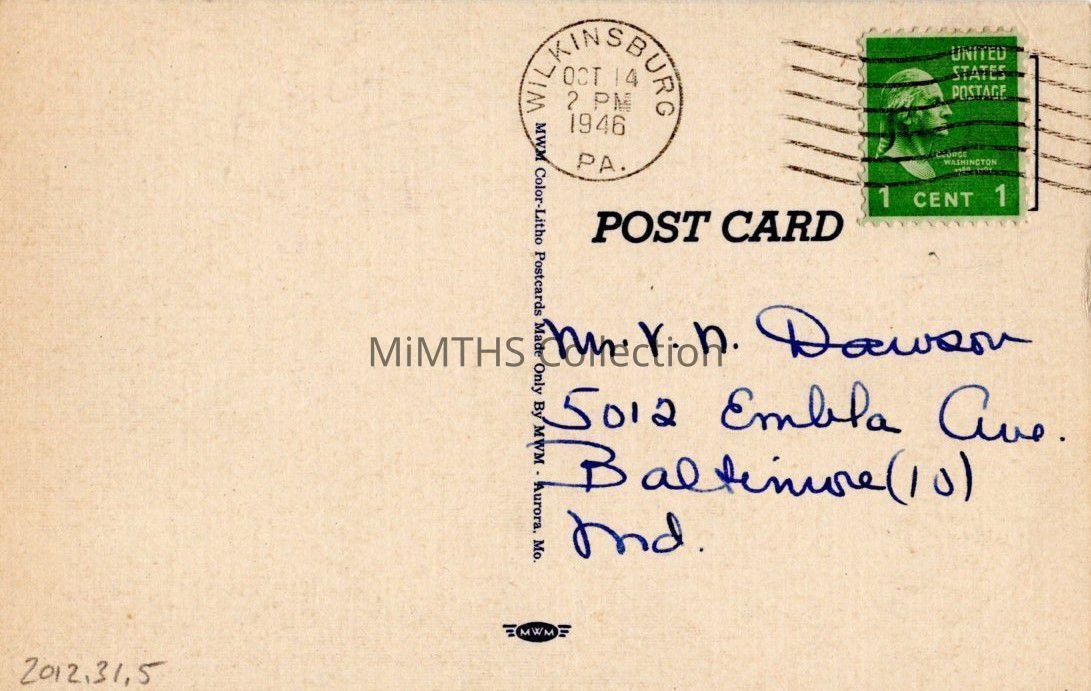 WILKINSBURG
OCT 14
2 PM
1946
PA.
UNITED
STATES
POSTAGE
GEORGE
WASHINGTON
1 CENT 1
POST CARD
MWM Color-Litho Postcards Made Only By MWM - Aurora, Mo.
MiMTHS Collection
Mr. V. N. Dawson
5012 Embla Ave.
Baltimore (10)
Md.
MWM
2012.31.5